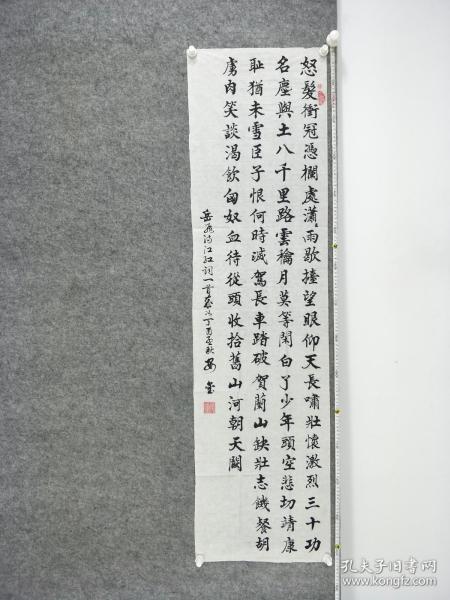 怒髮衝冠憑欄處瀟〻雨歇擡望眼仰天長嘯壯懷激烈三十功
名塵與土八千里路雲龢月莫等閑白了少年頭空悲切靖康
耻猶未雪臣子恨何時滅駕長車踏破賀蘭山缺壯志饑餐胡
虜肉笑談渴飲匈奴血待從頭收拾舊山河朝天闕
岳飛滿江紅詞一首丁酉秋
孔夫子旧书网
www.kongfz.com